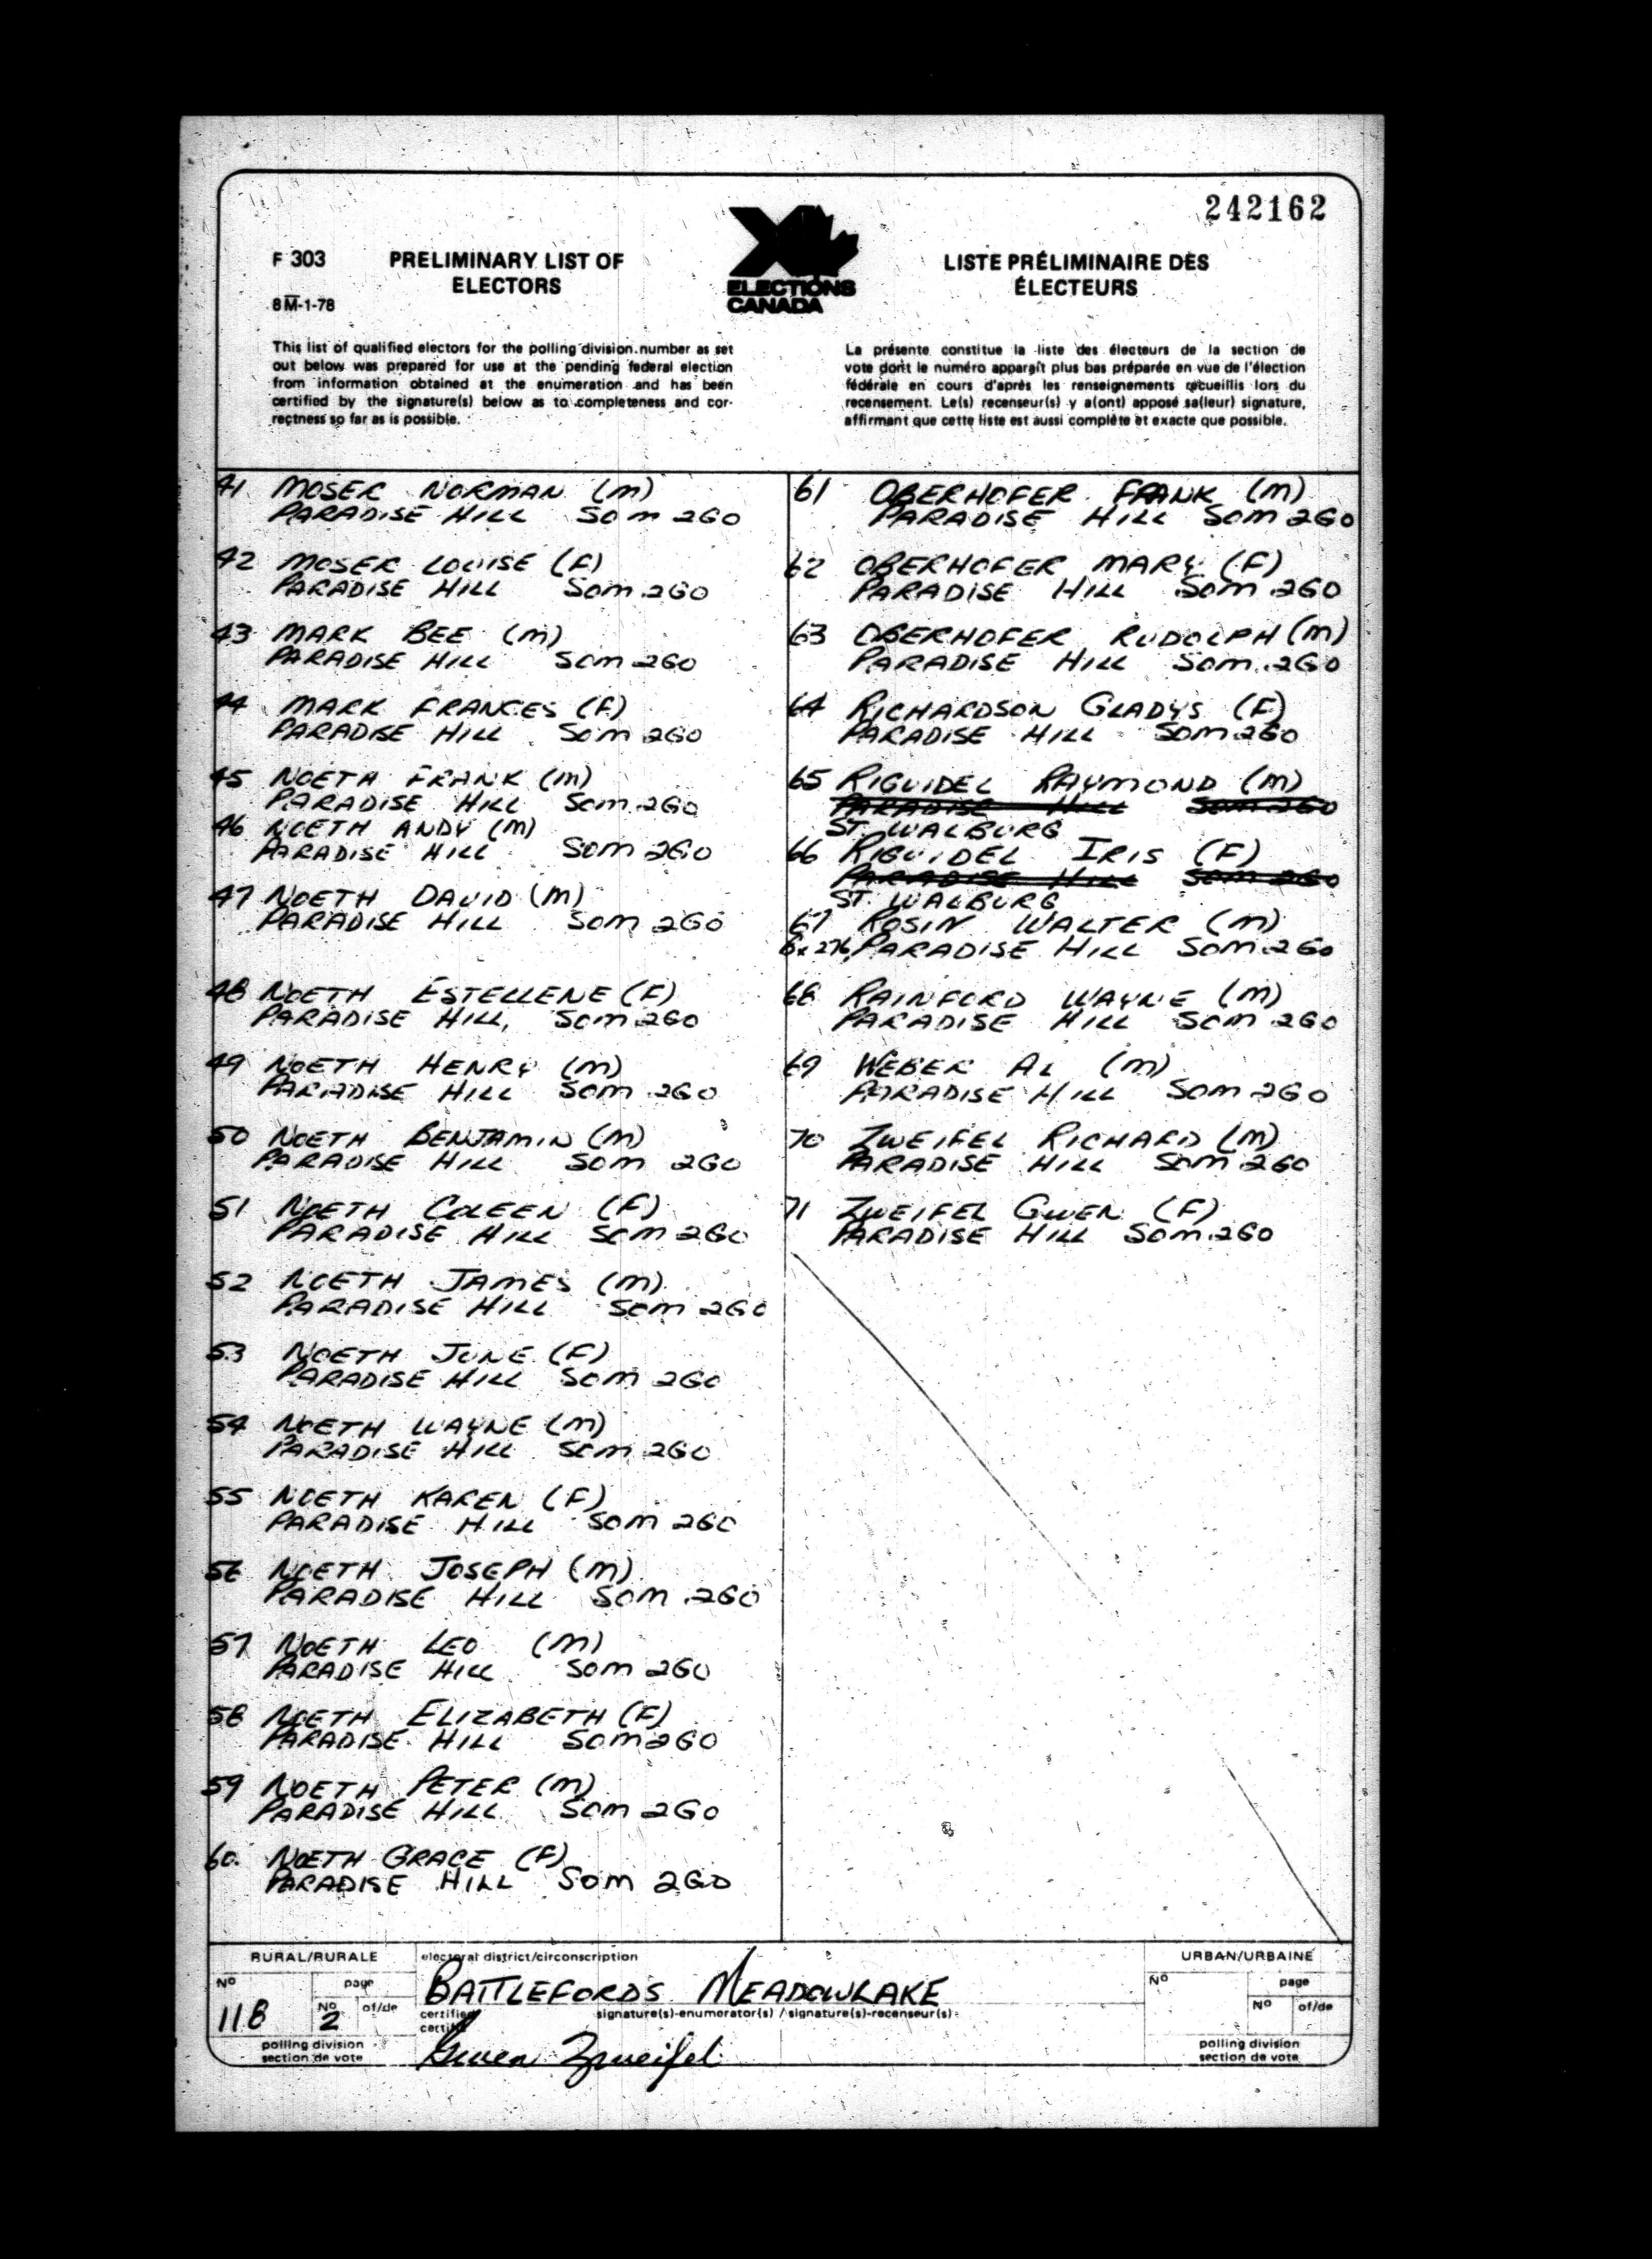 242162
F 303
PRELIMINARY LIST OF
ELECTORS
8M-1-78
ELECTIONS
CANADA
LISTE PRÉLIMINAIRE DES
ÉLECTEURS
This list of qualified electors for the polling division number as set
out below was prepared for use at the pending federal election
from information obtained at the enumeration and has been
certified by the signature(s) below as to completeness and cor-
rectness so far as is possible.
La présente constitue la liste des électeurs de la section de
vote dont le numéro apparaît plus bas préparée en vue de l'élection
fédérale en cours d'après les renseignements recueillis lors du
recensement. Le(s) recenseur(s) y a(ont) apposé sa(leur) signature,
affirmant que cette liste est aussi complète et exacte que possible.
41 MOSER NORMAN (M)
PARADISE HILL SOM 2GO
42 MOSER LOUISE (F)
PARADISE HILL SOM 2GO
43 MARK BEE (M)
PARADISE HILL SOM 2GO
44 MARK FRANCES (F)
PARADISE HILL SOM 2GO
45 NOETH FRANK (M)
PARADISE HILL SOM 2GO
46 NOETH ANDY (M)
PARADISE HILL SOM 2GO
47 NOETH DAVID (M)
PARADISE HILL SOM 2GO
48 NOETH ESTELLENE (F)
PARADISE HILL, SOM 2GO
49 NOETH HENRY (M)
PARADISE HILL SOM 2GO
50 NOETH BENJAMIN (M)
PARADISE HILL SOM 2GO
51 NOETH COLEEN (F)
PARADISE HILL SOM 2GO
52 NOETH JAMES (M)
PARADISE HILL SOM 2GO
53 NOETH JUNE (F)
PARADISE HILL SOM 2GO
54 NOETH WAYNE (M)
PARADISE HILL SOM 2GO
55 NOETH KAREN (F)
PARADISE HILL SOM 2GO
56 NOETH JOSEPH (M)
PARADISE HILL SOM 2GO
57 NOETH LEO (M)
PARADISE HILL SOM 2GO
58 NOETH ELIZABETH (F)
PARADISE HILL SOM 2GO
59 NOETH PETER (M)
PARADISE HILL SOM 2GO
60. NOETH GRACE (F)
PARADISE HILL SOM 2GO
61 OBERHOFER FRANK (M)
PARADISE HILL SOM 2GO
62 OBERHOFER MARY (F)
PARADISE HILL SOM 2GO
63 OBERHOFER RUDOLPH (M)
PARADISE HILL SOM 2GO
64 RICHARDSON GLADYS (F)
PARADISE HILL SOM 2GO
65 RIGUIDEL RAYMOND (M)
PARADISE HILL SOM 2GO
ST. WALBURG
66 RIGUIDEL IRIS (F)
PARADISE HILL SOM 2GO
ST. WALBURG
67 ROSIN WALTER (M)
Bx 276, PARADISE HILL SOM 2GO
68 RAINFORD WAYNE (M)
PARADISE HILL SOM 2GO
69 WEBER AL (M)
PARADISE HILL SOM 2GO
70 ZWEIFEL RICHARD (M)
PARADISE HILL SOM 2GO
71 ZWEIFEL GWEN (F)
PARADISE HILL SOM 2GO
RURAL/RURALE
No
118
page
No
2
of/de
polling division
section de vote
electoral district/circonscription
BATTLEFORDS MEADOWLAKE
certified
certifié
signature(s)-enumerator(s) / signature(s)-recenseur(s)
Gwen Zweifel
URBAN/URBAINE
No
page
No
of/de
polling division
section de vote